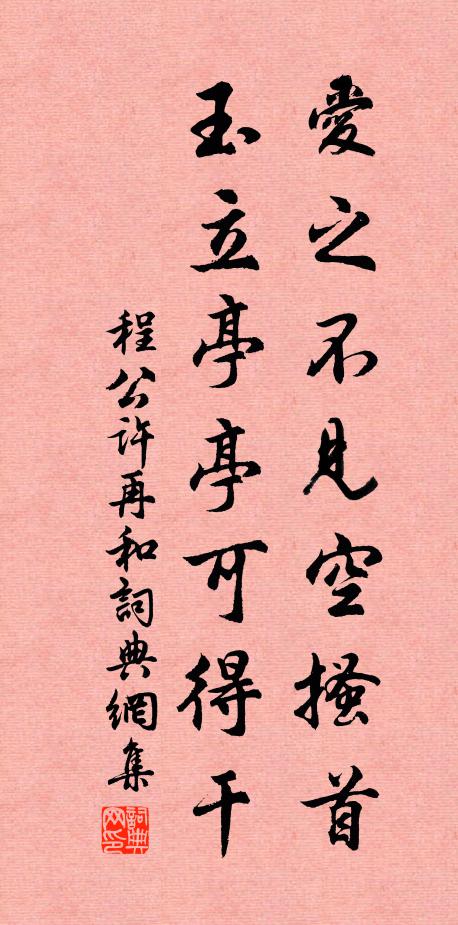 愛之不見空搔首
玉立亭亭可得干
程公許再和詞典網集
詞典网印